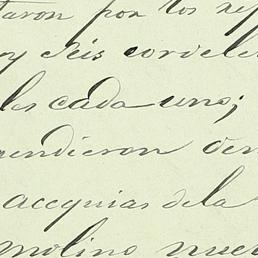 taron por los
y seis cordele
las cada uno;
endieron de
acequias de la
molino nue